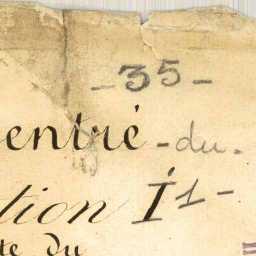 -35-
entré -du-
tion I 1-
te du